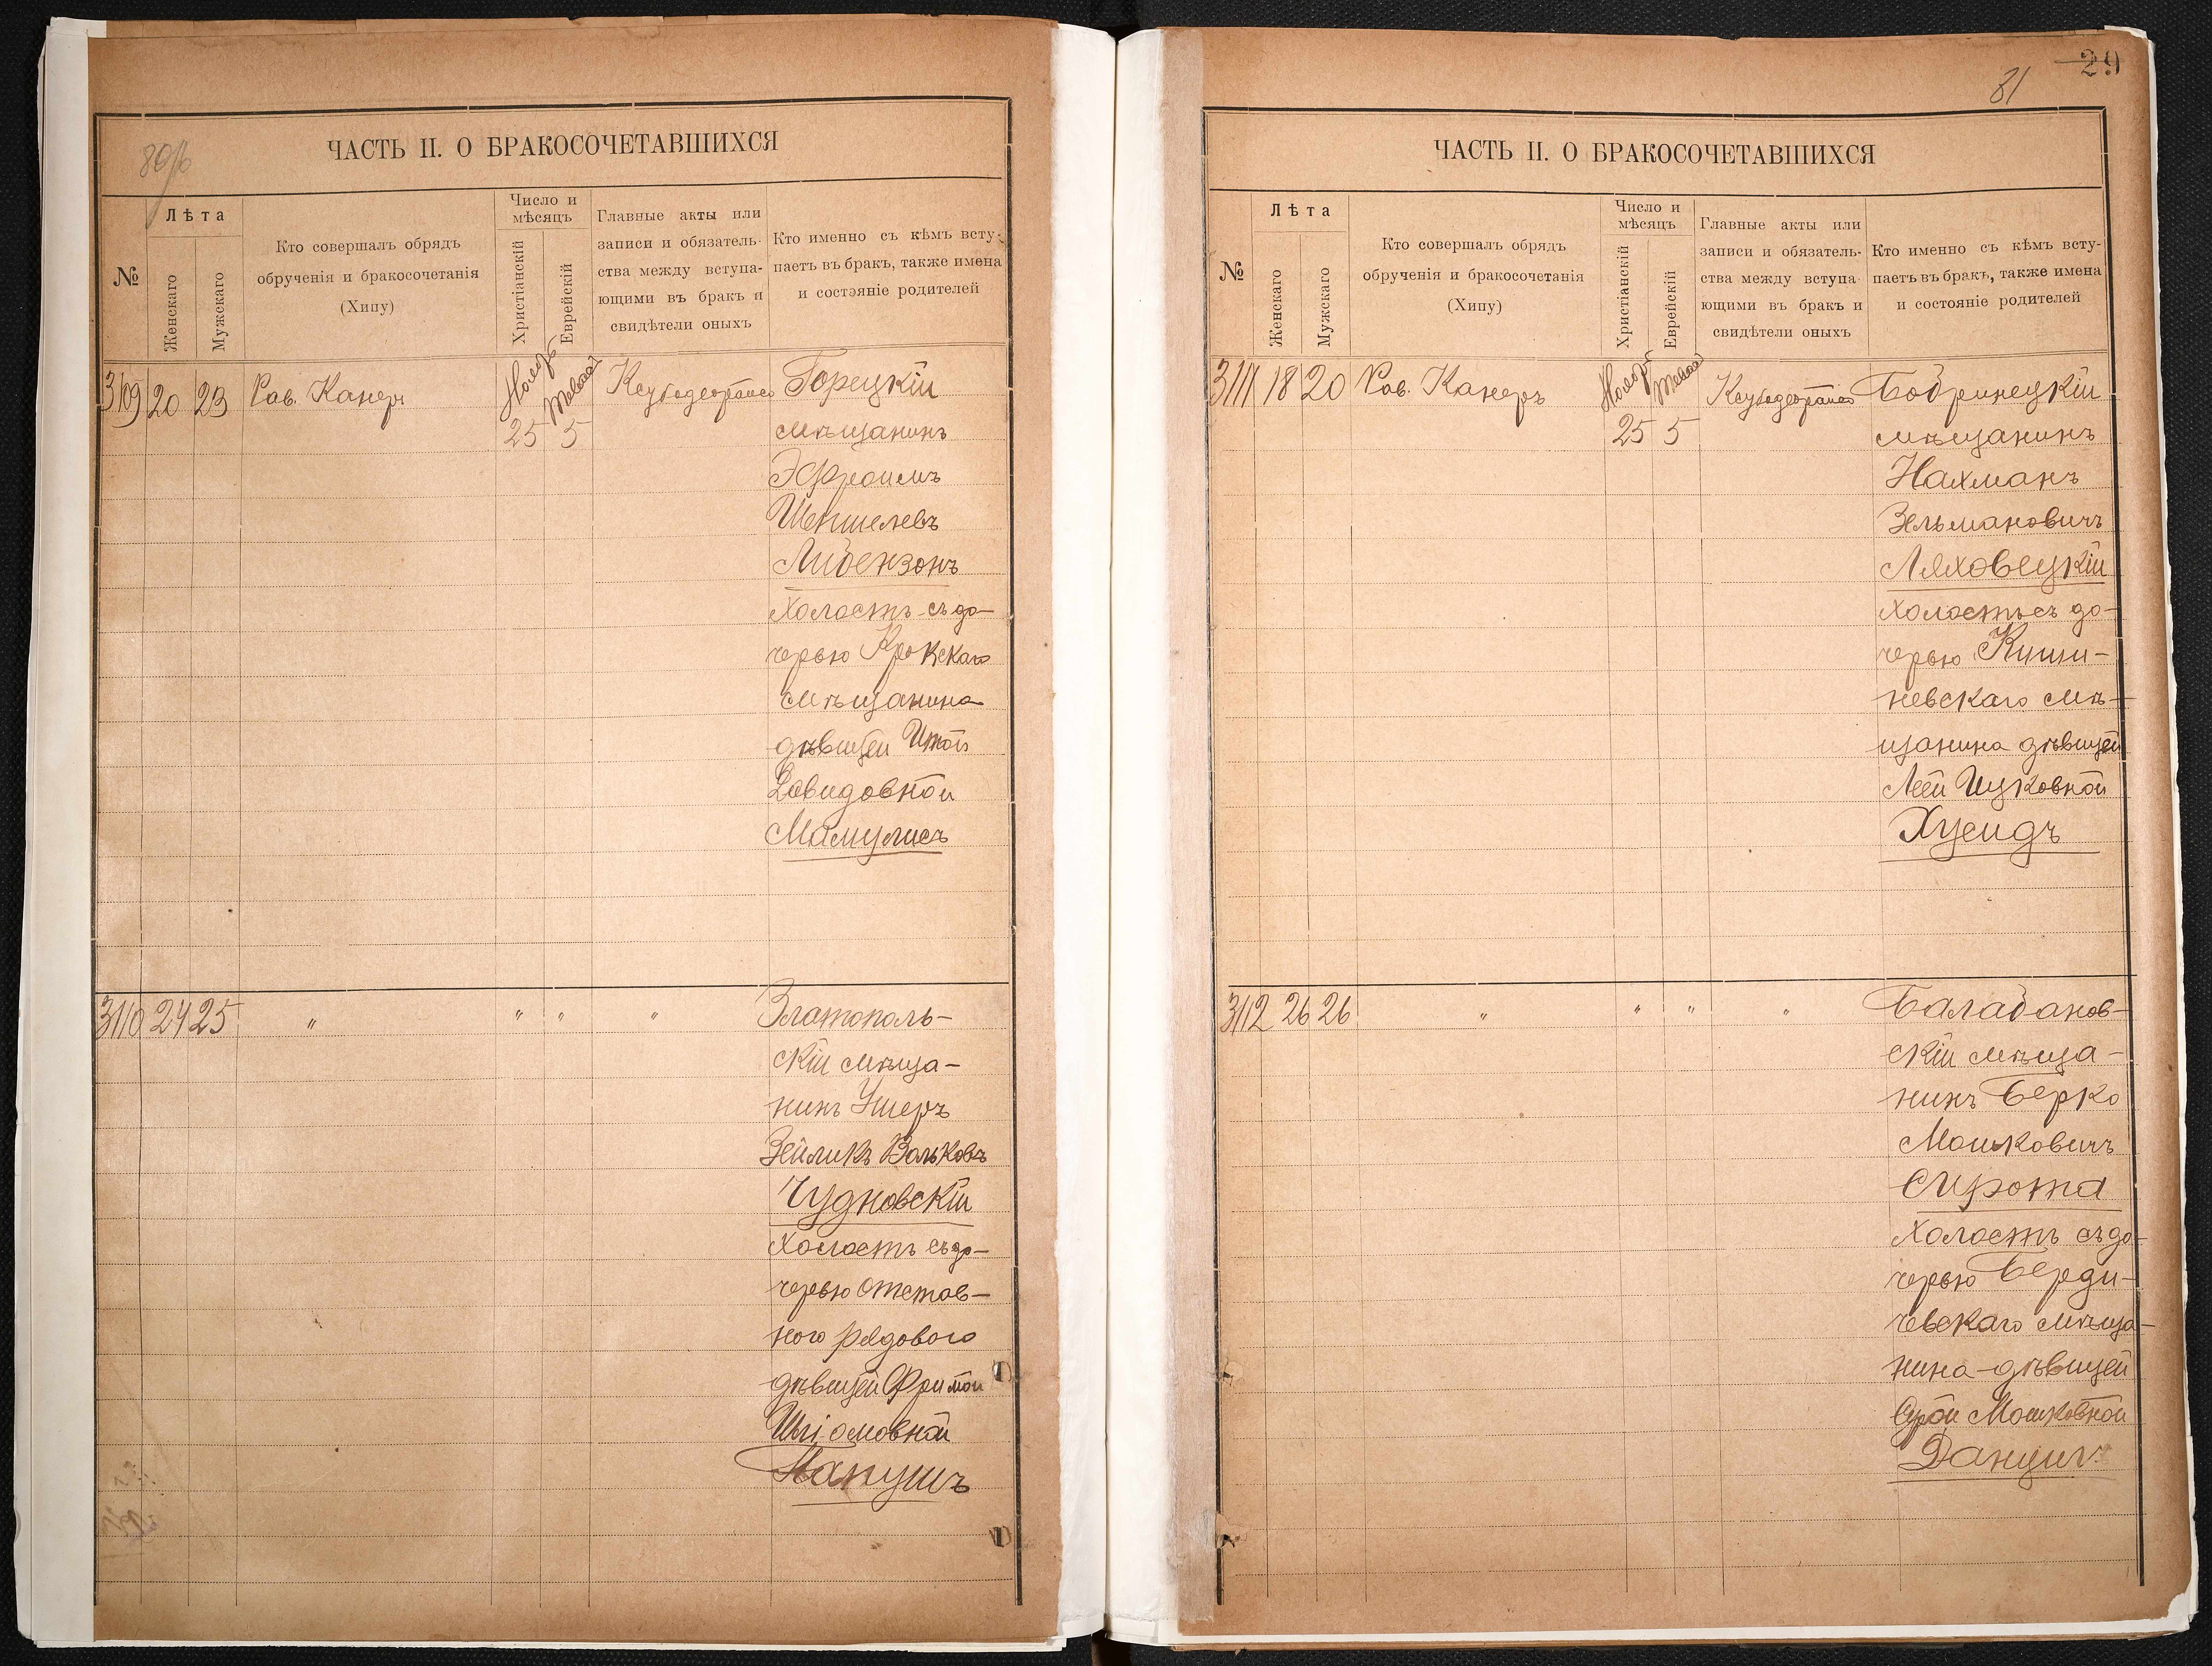 80/б
ЧАСТЬ II. О БРАКОСОЧЕТАВШИХСЯ
№
Лѣта
Женскаго
Мужскаго
Кто совершалъ обрядъ
обрученія и бракосочетанія
(Хипу)
Число и
мѣсяцъ
Христіанскій
Еврейскій
Главные акты или
записи и обязатель-
ства между вступа-
ющими въ бракъ и
свидѣтели оныхъ
Кто именно съ кѣмъ всту-
паетъ въ бракъ, также имена
и состояніе родителей
3109 20 23 Рав. Канеръ Ноябр 25 5 Горецкій
мѣщанинъ
Эфроимъ
Шеншелевъ
Либензонъ
холостъ съ до-
черью
мѣщанина
дѣвицей Итой
Давидовной
Мамулисъ
3110 24 25 " " " " Златополь-
скій мѣща-
нинъ Ушеръ
Зейликъ Вольковъ
Чудновскій
Холостъ съ до-
черью отстав-
ного рядового
дѣвицей
Шліомовной
Папушъ
29
81
ЧАСТЬ II. О БРАКОСОЧЕТАВШИХСЯ
№
Лѣта
Женскаго
Мужскаго
Кто совершалъ обрядъ
обрученія и бракосочетанія
(Хипу)
Число и
мѣсяцъ
Христіанскій
Еврейскій
Главные акты или
записи и обязатель-
ства между вступа-
ющими въ бракъ и
свидѣтели оныхъ
Кто именно съ кѣмъ всту-
паетъ въ бракъ, также имена
и состояніе родителей
3111 18 20 Рав. Канеръ Ноябр 25 5 Бобринецкій
мѣщанинъ
Нахманъ
Зельмановичъ
Ляховецкій
холостъ съ до-
черью Киши-
невскаго мѣ-
щанина дѣвицей
Леей Ицковной
Хусидъ
3112 26 26 " " " " Балабанов-
скій мѣща-
нинъ Берко
Мошковичъ
Сирота
Холостъ съ до-
черью Берди-
чевскаго мѣща-
нина дѣвицей
Сурой Мошковной
Данцигъ